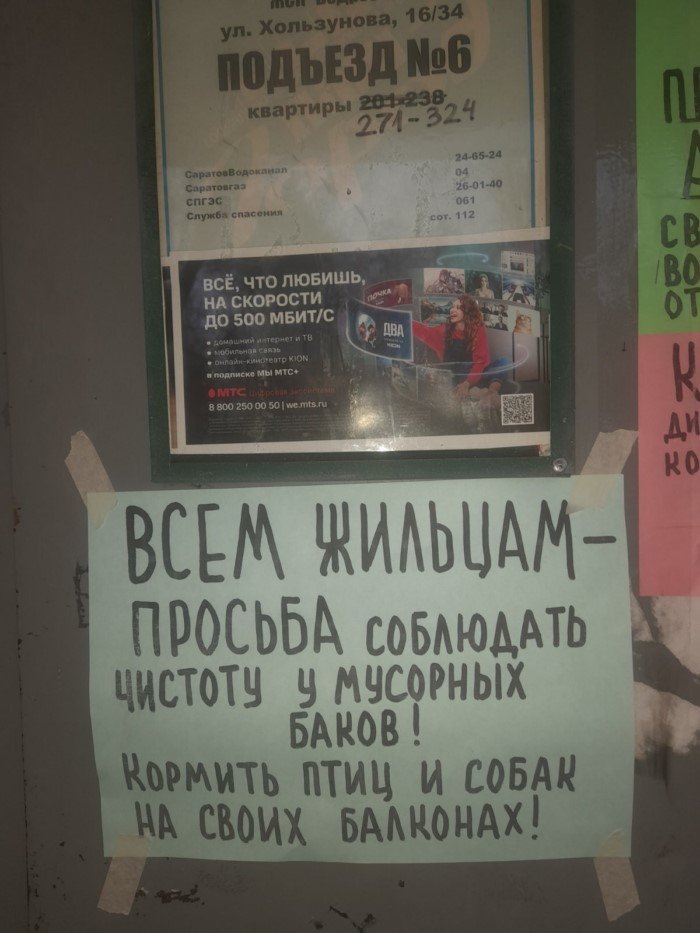 ул. Хользунова, 16/34
ПОДЪЕЗД №6
квартиры 201-238
271-324
СаратовВодоканал 24-65-24
Саратовгаз 04
СПГЭС 26-01-40
Служба спасения 061
сот. 112
ВСЁ, ЧТО ЛЮБИШЬ,
НА СКОРОСТИ
ДО 500 МБИТ/С
• домашний интернет и ТВ
• мобильная связь
• онлайн-кинотеатр KION
в подписке МЫ МТС+
МТС Цифровая экосистема
8 800 250 00 50 | we.mts.ru
ПОЧКА
ДВА
KION
ВСЕМ ЖИЛЬЦАМ-
ПРОСЬБА СОБЛЮДАТЬ
ЧИСТОТУ У МУСОРНЫХ
БАКОВ!
КОРМИТЬ ПТИЦ И СОБАК
НА СВОИХ БАЛКОНАХ!
СВ
ВО
ОТ
К
ДИ
КО